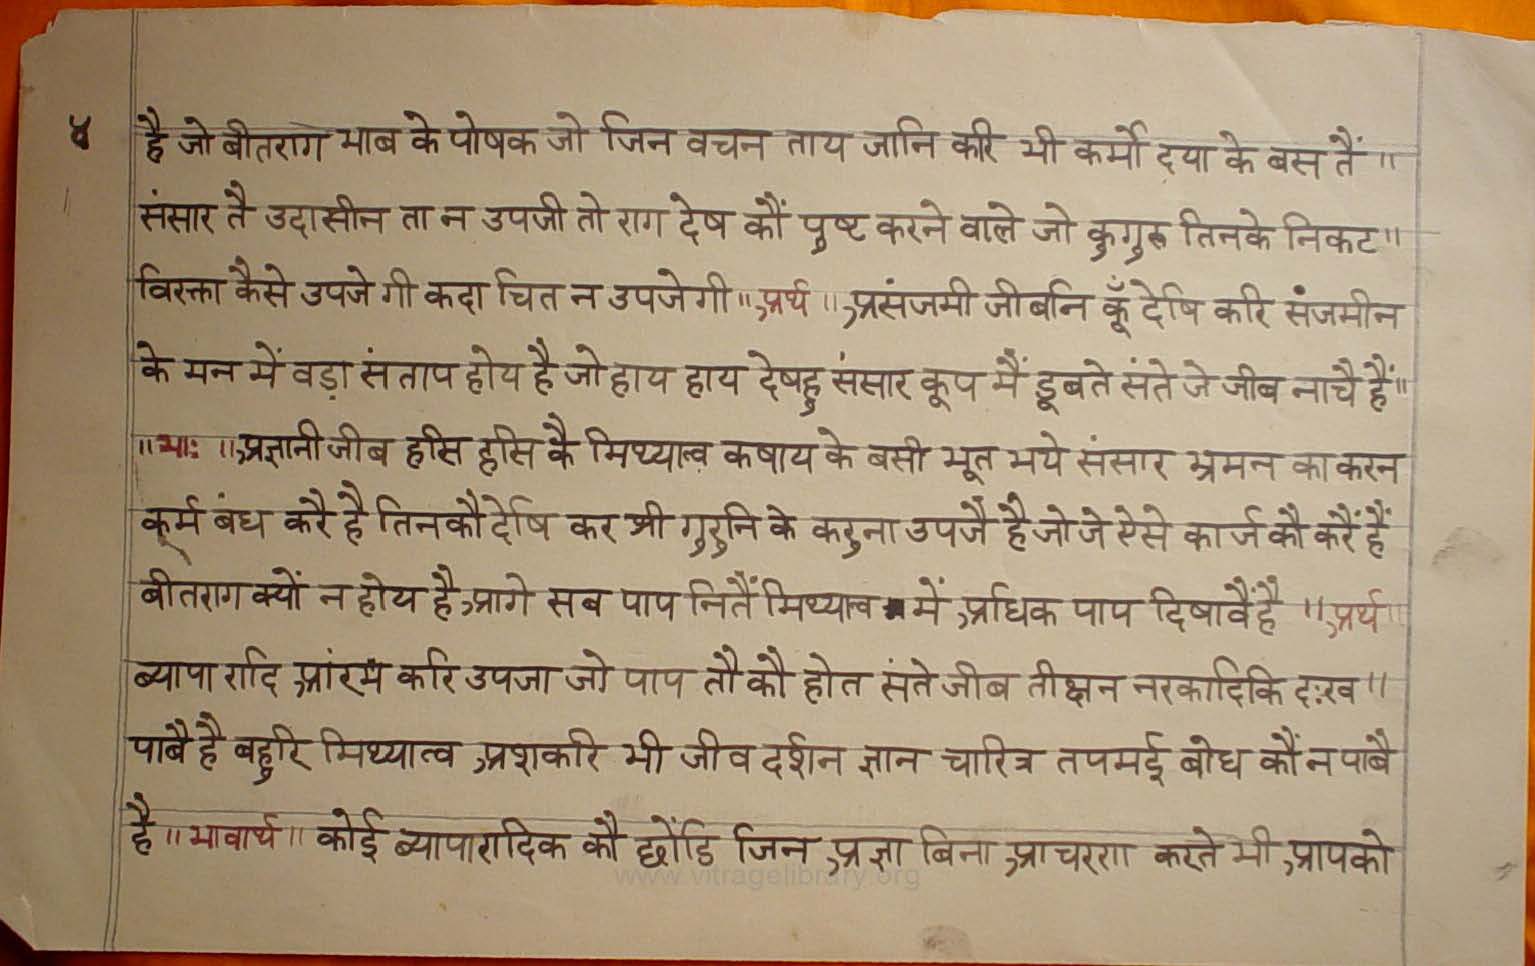 ४
है जो बीतराग भाब के पोषक जो जिन वचन ताय जानि करि भी कर्मो दया के बस तैं ॥
संसार तै उदासीन ता न उपजी तो राग देष कौं पुष्ट करने वाले जो कुगुरू तिनके निकट ॥
विरक्ता कैसे उपजे गी कदा चित न उपजेगी ॥ अर्थ ॥ असंजमी जीबनि कूँ देषि करि संजमीन
के मन में वड़ा संताप होय है जो हाय हाय देषहु संसार कूप मैं डूबते संते जे जीब नाचै हैं ॥
॥ भाः ॥ अज्ञानी जीब हसि हसि कै मिथ्यात्व कषाय के बसी भूत भये संसार भ्रमन का करन
कर्म बंध करै है तिनकौ देषि कर श्री गुरुनि के करुना उपजै है जो जे ऐसे कार्ज कौ करैं हैं
बीतराग क्यों न होय है आगे सब पाप नितैं मिथ्यात्व में अधिक पाप दिषावैं है ॥ अर्थ ॥
ब्यापा रादि आंरभ करि उपजा जो पाप तौ कौ होत संते जीब तीक्षन नरकादिकि दःख ॥
पाबै है बहुरि मिथ्यात्व अशकरि भी जीव दर्शन ज्ञान चारित्र तपमई बोध कौं न पाबै
है ॥ भावार्थ ॥ कोई ब्यापारादिक कौ छोंडि जिन अज्ञा बिना आचरण करते भी आपको
www.vitragelibrary.org